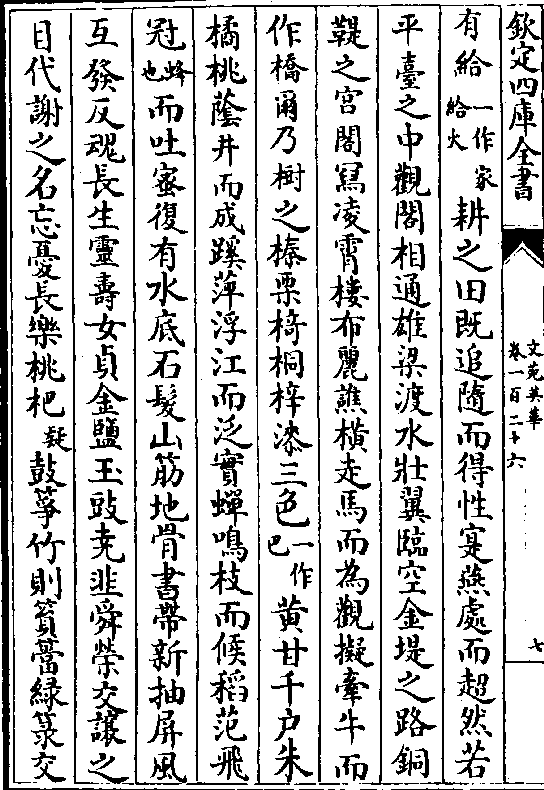 欽定四庫全書
文苑英華
卷一百二十六
七
有給一作家給火耕之田既追隨而得性寔燕處而超然若
平臺之中觀閣相通雄梁渡水壯翼臨空金堤之路銅
鞮之宫閣冩凌霄樓布麗譙横走馬而為觀擬牽牛而
作橋爾乃樹之榛栗椅桐梓漆三色一作巴黄甘千户朱
橘桃蔭井而成蹊萍浮江而泛實蟬鳴枝而候稻范飛
冠蜂也而吐蜜復有水底石髮山筋地骨書帶新抽屏風
互發反魂長生靈壽女貞金鹽玉豉堯韭舜榮交讓之
目代謝之名忘憂長樂桃杷疑鼓箏竹則篔簹緑篆交